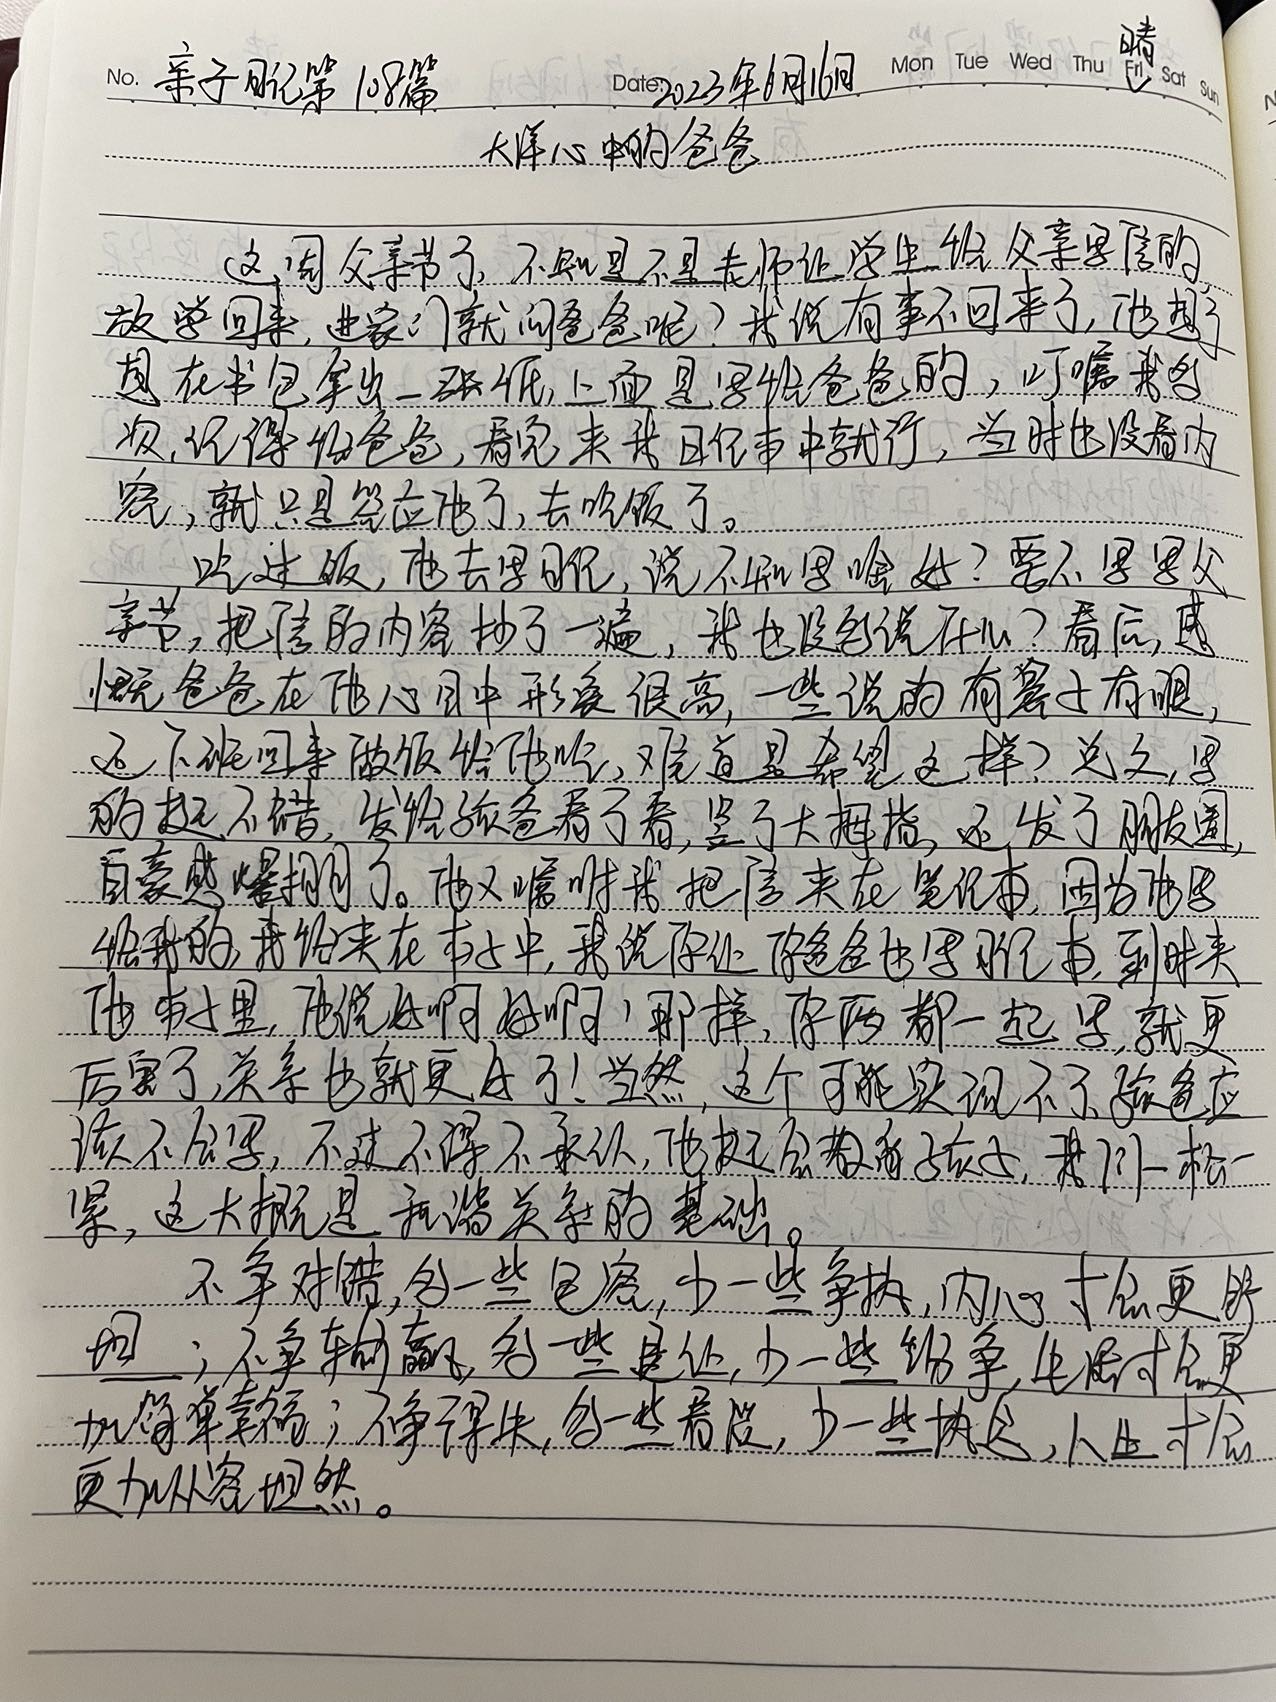 No. 亲子日记第108篇 Date: 2023年6月16日 Mon Tue Wed Thu Fri Sat Sun 晴
大洋心中的爸爸
这周父亲节了，不知是不是老师让学生给父亲写信的，
放学回来，进家门就问爸爸呢？我说有事不回来了，他想了
想在书包拿出一张纸，上面是写给爸爸的，叮嘱我多
次，记得给爸爸，看完夹我日记本中就行，当时也没看内
容，就只是答应他了，去吃饭了。
吃过饭，他去写日记，说不知写啥好？要不写写父
亲节，把信的内容抄了一遍，我也没多说什么？看后，感
慨爸爸在他心目中形象很高，一些说的有鼻子有眼，
还下班回来做饭给他吃，难道是希望这样？总之，写
的挺不错，发给孩爸看了看，竖了大拇指，还发了朋友圈，
自豪感爆棚了。他又嘱咐我把信夹在笔记本，因为他写
给我的，我给夹在本子中，我说你让你爸爸也写日记本，到时夹
他本子里，他说好啊好啊！那样，你俩都一起写，就更
厉害了，关系也就更好了！当然，这个可能实现不了，孩爸应
该不会写，不过不得不承认，他挺会教育孩子，我们一松一
紧，这大概是和谐关系的基础。
不争对错，多一些包容，少一些争执，内心才会更舒
坦；不争输赢，多一些退让，少一些纷争，生活才会更
加简单幸福；不争得失，多一些看淡，少一些执念，人生才会
更加从容坦然。